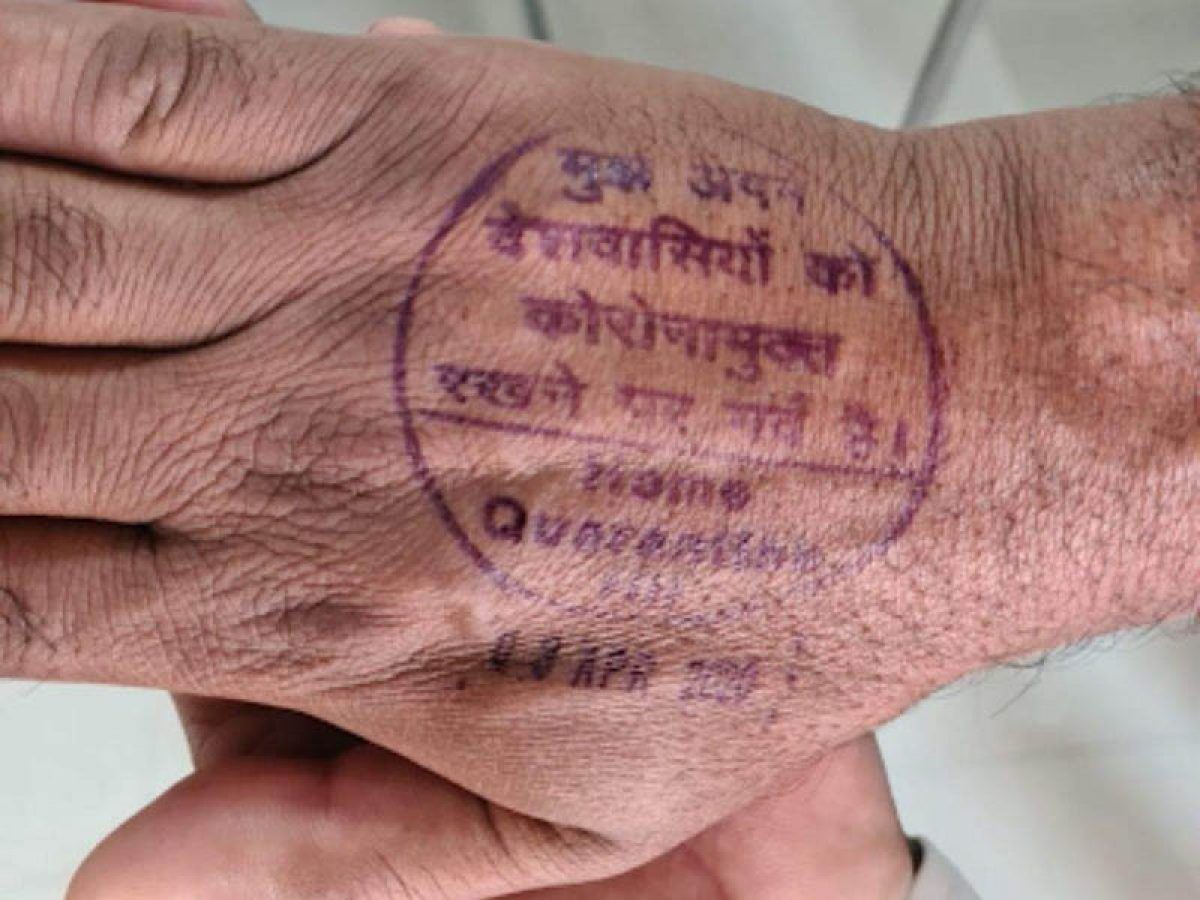 मुझे अपने
देशवासियों को
कोरोनामुक्त
रखने पर गर्व है।
Home
Quarantine
APR 2020